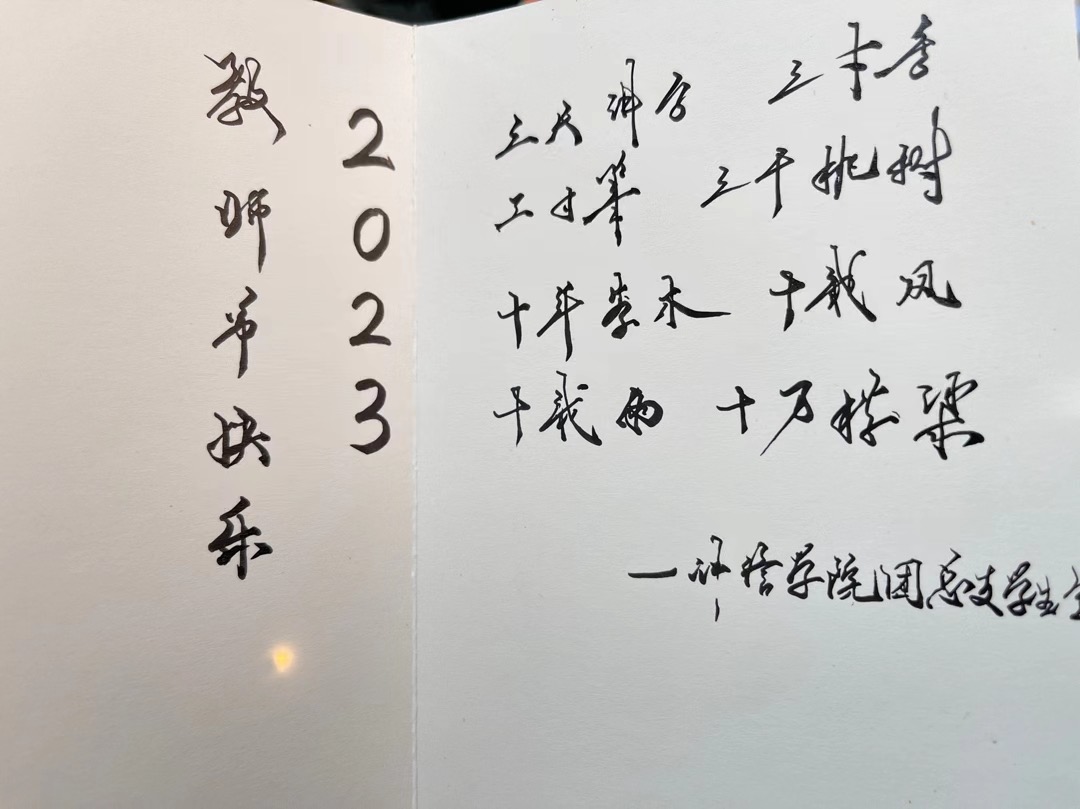 教师节快乐
2023
三尺讲台 三寸舌
三寸笔 三千桃树
十年树木 十载风
十载雨 十万栋梁
学院团总支学生会